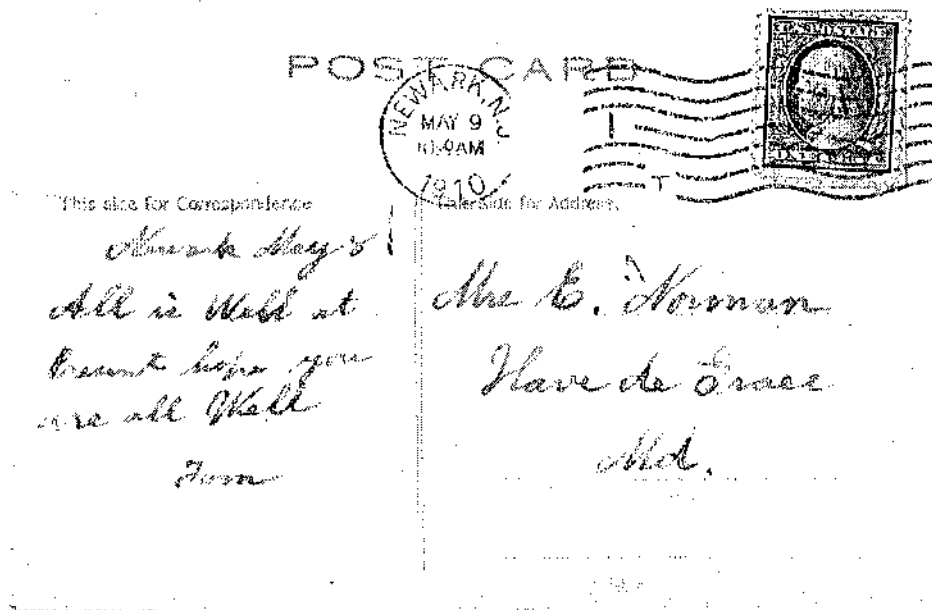 POST CARD
NEWARK, N.J.
MAY 9
AM
1910
This side for Correspondence
Side for Address.
May 8
All is Well at
Present hope you
are all Well
Tom
Mrs E. Norman
Havre de Grace
Md.